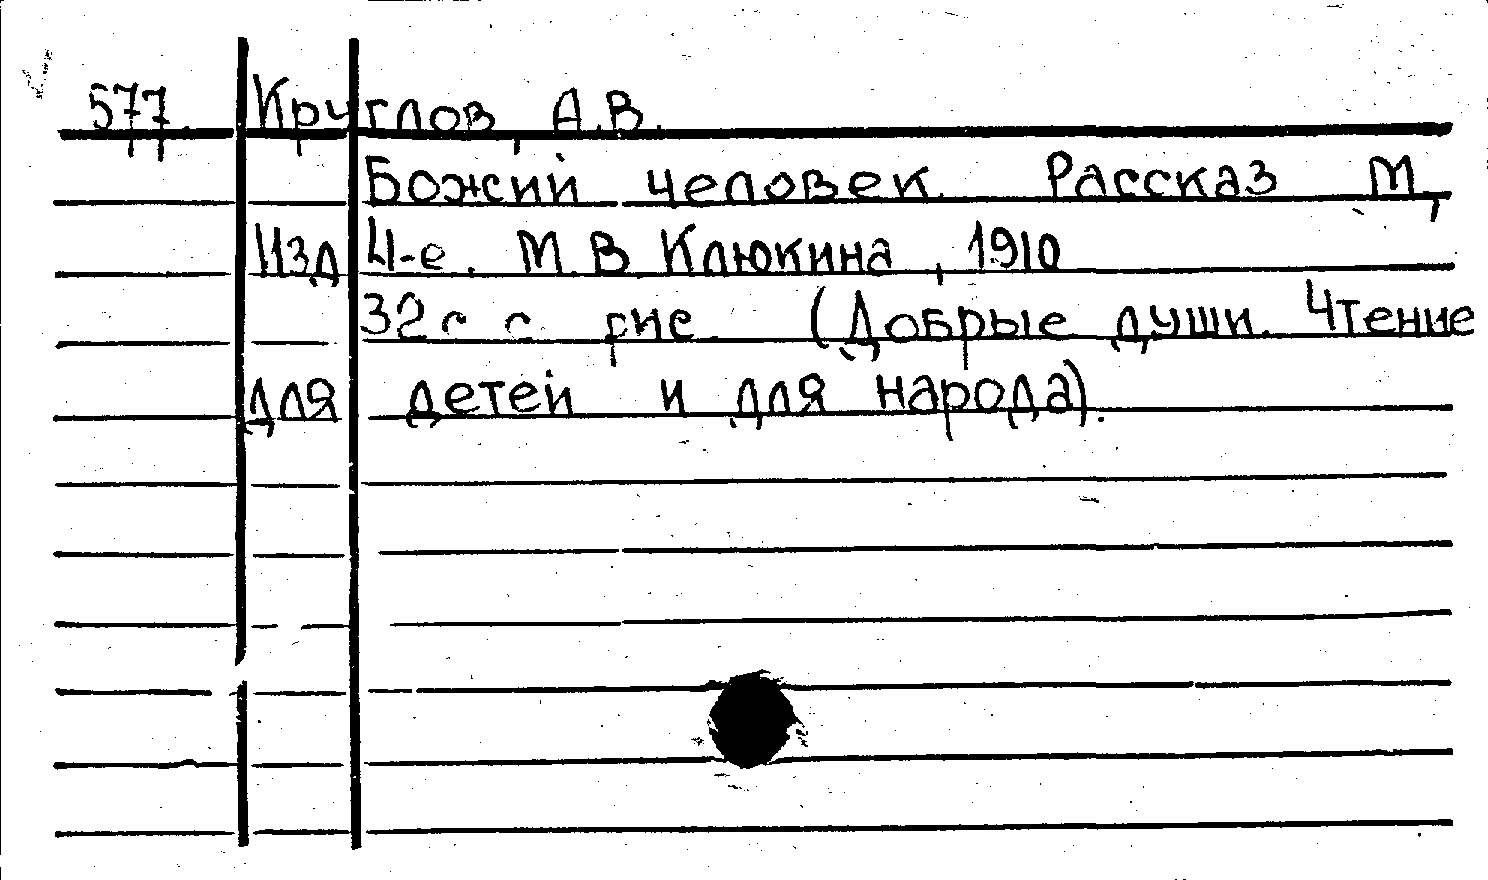 577. Круглов, А.В.
Божий человек. Рассказ М.,
Изд 4-е. М.В. Клюкина, 1910
32 с с рис (Добрые души. Чтение
для детей и для народа).